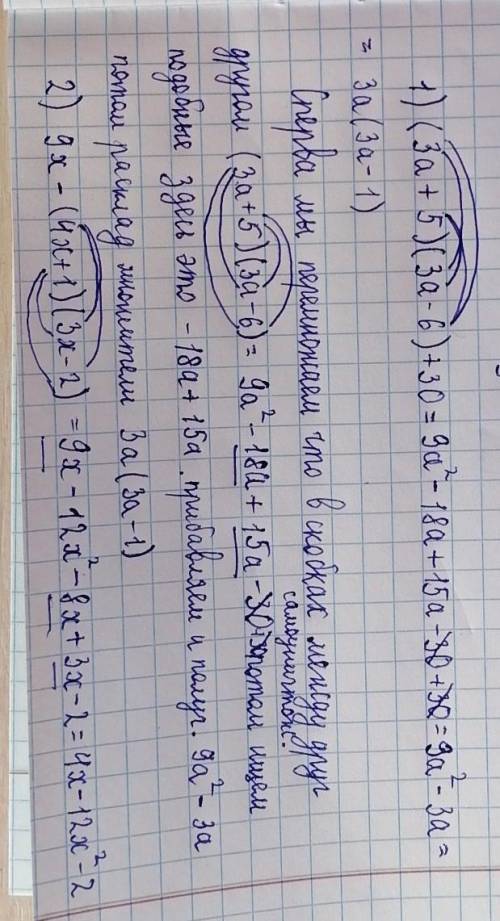 1) (3a + 5)(3a - 6) + 30 = 9a² - 18a + 15a - 30 + 30 = 9a² - 3a =
= 3a(3a - 1)
Сперва мы перемножаем что в скобках между друг
другом (3a + 5)(3a - 6) = 9a² - 18a + 15a - 30 + 30 потом ищем
самоуничтож.
подобные здесь это - 18a + 15a. прибавляем и получ. 9a² - 3a
потом расклад множители 3a(3a - 1)
2) 9x - (4x + 1)(3x - 2) = 9x - 12x² - 8x + 3x - 2 = 4x - 12x² - 2